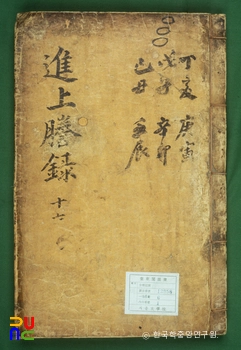 丁亥 庚寅
戊子 辛卯
己丑 壬辰
進上謄錄
十六
ⓒ한국학중앙연구원